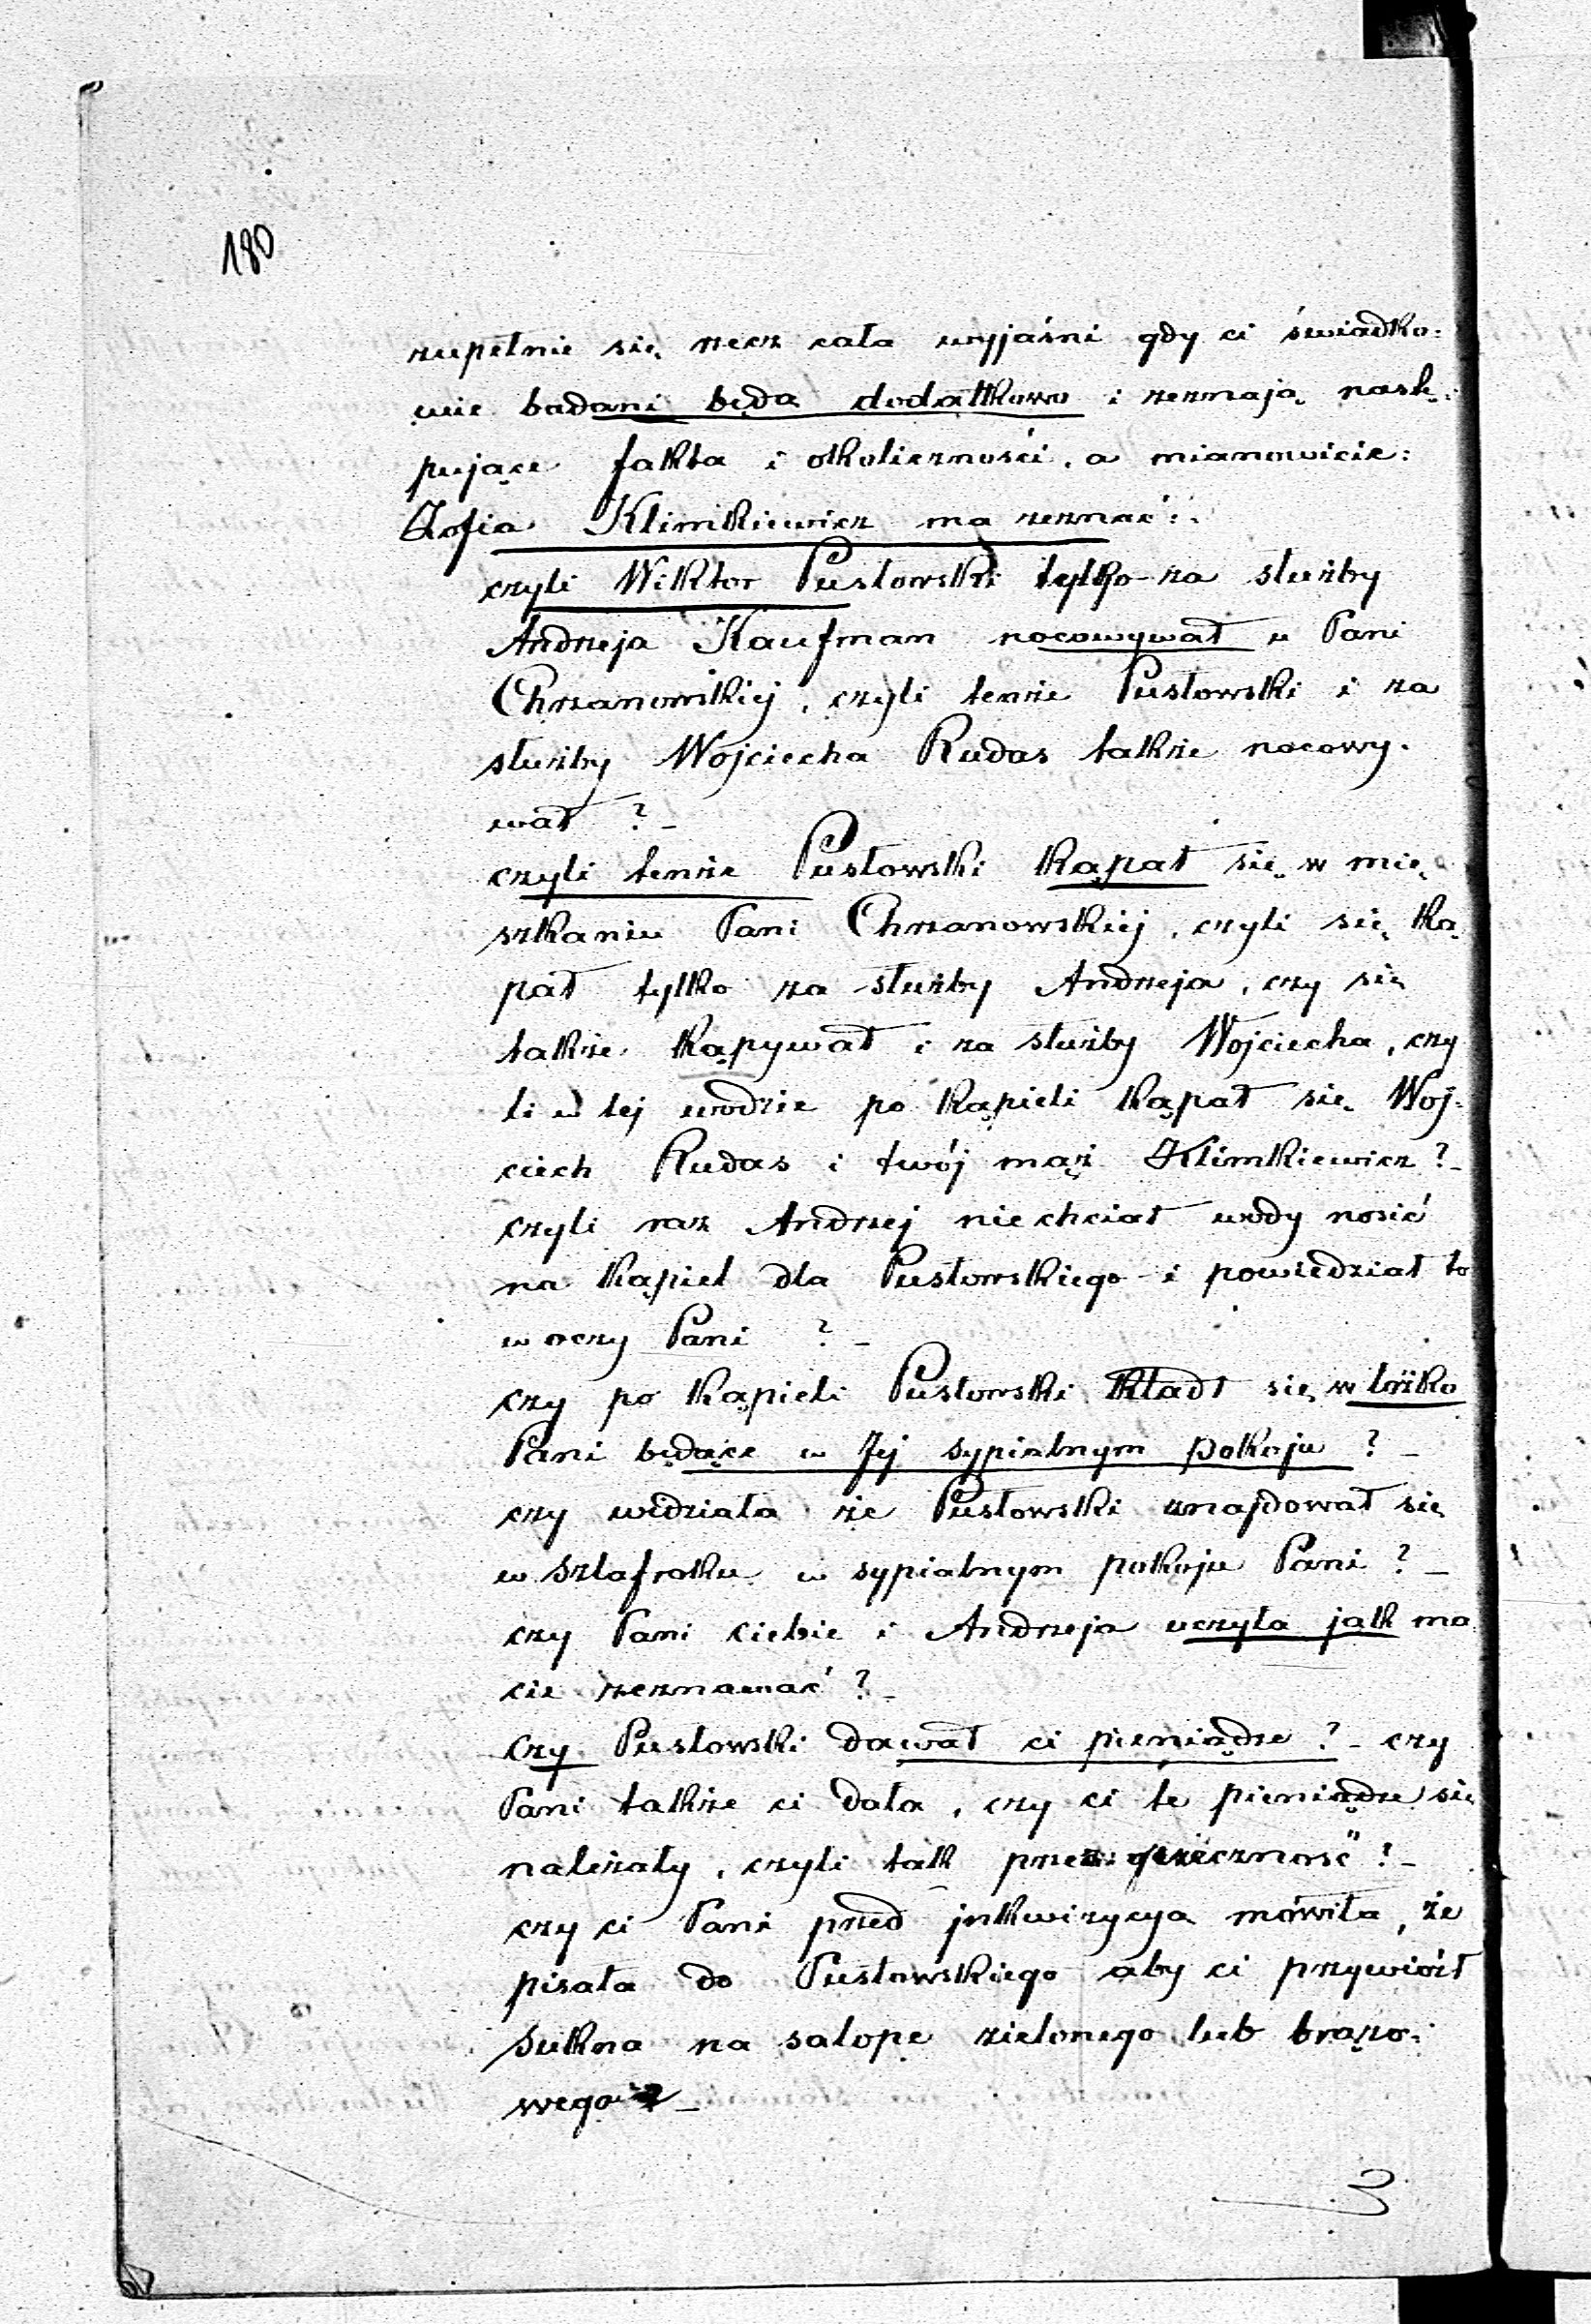 180
zupełnie się rzecz cała wyjaśni gdy ci świadko:
wie badani będą dodatkowo i zeznają nastę:
pujące fakta i okoliczności, a mianowicie:
Zofia Klimkiewicz ma zeznać:
czyli Wiktor Pusłowski tylko za służby
Andrzeja Kaufman nocowywał u Pani
Chrzanowskiej, czyli tenże Pusłowski i za
służby Wojciecha Rudas także nocowy-
wał ? _
czyli tenże Pusłowski kąpał się w mie
szkaniu Pani Chrzanowskiej, czyli się ką
pał tylko za służby Andrzeja, czy się
także kąpywał i za służby Wojciecha, czy
li w tej wodzie po kąpieli kąpał się Woj-
ciech Rudas i twój mąż Klimkiewicz ? _
czyli raz Andrzej niechciał wody nosić
na kąpiel dla Pusłowskiego i powiedział to
w oczy Pani ? _
czy po kąpieli Pusłowski kładł się w łóżko
Pani będące w Jej sypialnym pokoju ? _
czy widziała że Pusłowski znajdował się
w szlafroku w sypialnym pokoju Pani ? _
czy Pani ciebie i Andrzeja uczyła jak ma
cie zeznawać ? _
czy Pusłowski dawał ci pieniądze ? _ czy
Pani także ci dała, czy ci te pieniądze się
należały, czyli tak przez grzeczność ? _
czy ci Pani przed inkwizycyą mówiła, że
pisała do Pusłowskiego aby ci przywiózł
sukna na salopę zielonego lub brązo-
wego ? _